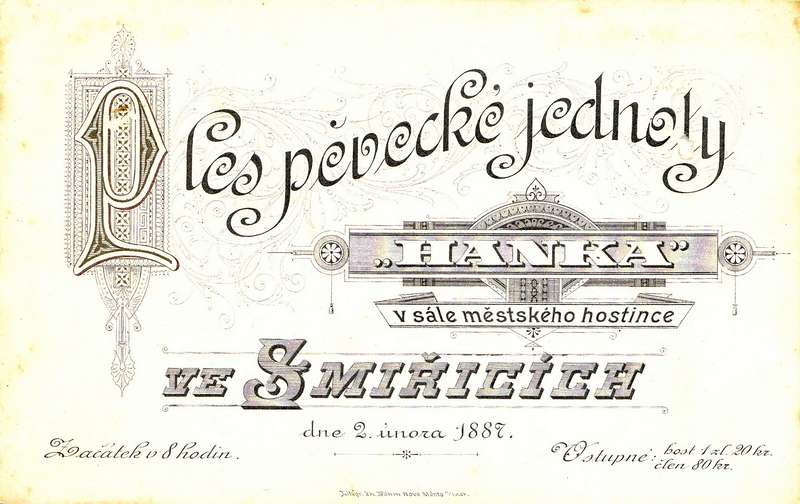 Ples pěvecké jednoty
„HANKA“
v sále městského hostince
VE SMIŘICÍCH
dne 2. února 1887.
Začátek v 8 hodin.
Vstupné: host 1 zl. 20 kr.
člen 80 kr.
Böhm Nové Město